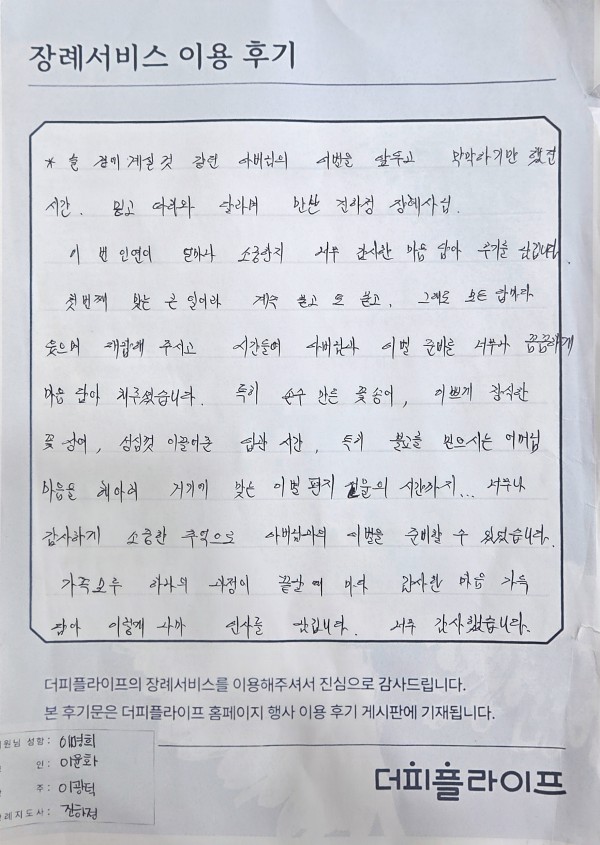 장례서비스 이용 후기
* 늘 곁에 계실 것 같던 아버님의 이별을 앞두고 막막하기만 했던
시간. 믿고 따라와 달라며 만난 진하정 장례사님.
이번 인연이 얼마나 소중한지 너무 감사한 마음 담아 후기를 남깁니다.
첫번째 맞는 큰 일이라 계속 묻고 또 묻고, 그래도 답마다
웃으며 대답해 주시고 시간들여 아버님과 이별 준비를 너무나 꼼꼼하게
마음 담아 해주셨습니다. 특히 손수 만든 꽃송이, 이쁘게 장식한
꽃 잎이, 섬심껏 이끌어준 입관 시간, 특히 불교를 믿으시는 어머님
마음을 헤아려 거기에 맞는 이별 편지 의 시간까지... 너무나
감사하게 소중한 추억으로 아버님과의 이별을 준비할 수 있었습니다.
가족모두 하나의 과정이 끝날 때 마다 감사한 마음 가득
담아 이렇게 나마 인사를 남깁니다. 너무 감사했습니다.
더피플라이프의 장례서비스를 이용해주셔서 진심으로 감사드립니다.
본 후기문은 더피플라이프 홈페이지 행사 이용 후기 게시판에 기재됩니다.
원님 성함: 이명희
인: 이윤화
주: 이광덕
례지도사: 진하정
더피플라이프